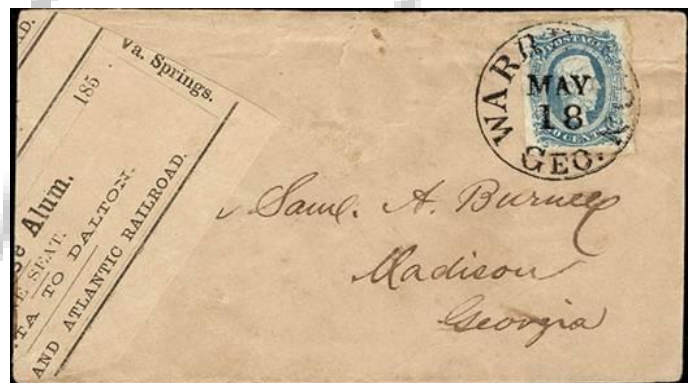 AD.
Va. Springs.
185
se Alum.
NE SEAT.
TA TO DALTON.
AND ATLANTIC RAILROAD.
POSTAGE
WARR
MAY
18
GEO.
CENT
Saml. A. Burney
Madison
Georgia